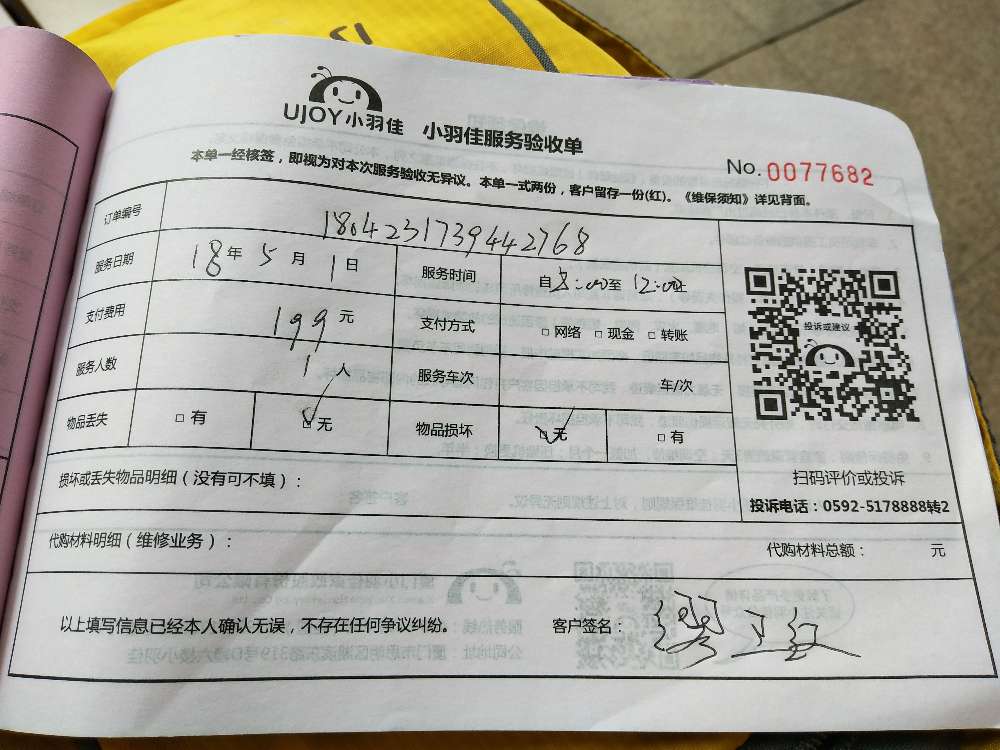 UJOY小羽佳 小羽佳服务验收单
No. 0077682
本单一经核签，即视为对本次服务验收无异议。本单一式两份，客户留存一份(红)。《维保须知》详见背面。
订单编号 180423173944276​8
服务日期 18年 5月 1日 服务时间 自8:00至12:00
支付费用 199元 支付方式 □网络 □现金 □转账
服务人数 1人 服务车次 车/次
投诉或建议
物品丢失 □有 ☑无 物品损坏 ☑无 □有
损坏或丢失物品明细（没有可不填）：
扫码评价或投诉
投诉电话：0592-5178888转2
代购材料明细（维修业务）： 代购材料总额： 元
以上填写信息已经本人确认无误，不存在任何争议纠纷。 客户签名：